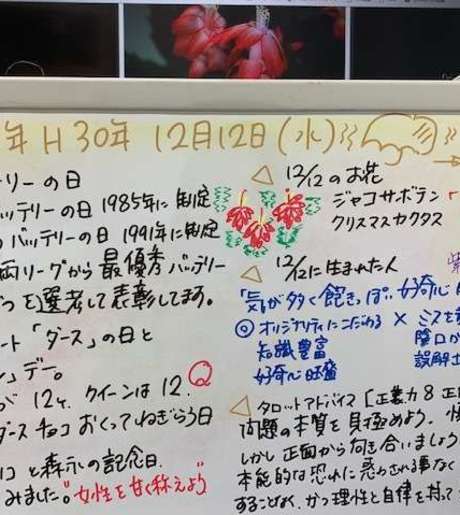 年 H30年 12月12日(水)
テリーの日
バッテリーの日 1985年に制定
バッテリーの日 1991年に制定
両リーグから最優秀バッテリー
を選考して表彰してます。
ート「ダース」の日と
デー。
が 12で、クイーンは 12. Q
ダースチョコ おくってねぎらう日
コ と 森永の記念日.
みました。"女性を甘く称えよう
△ 12/12のお花
ジャコサボテン「
クリスマスカクタス
△ 12/12に生まれた人
「気が多く飽きっぽい 好奇心
◎ オリジナリティにこだわる × ミスを
知識豊富
好奇心旺盛
誤解
△ タロットアドバイス [正義力 8 正
問題の本質を見極めよう.
しかし正面から向き合いましょう
本能的な恐れに惑わされる事なく
することなく、かつ理性と自律を持って